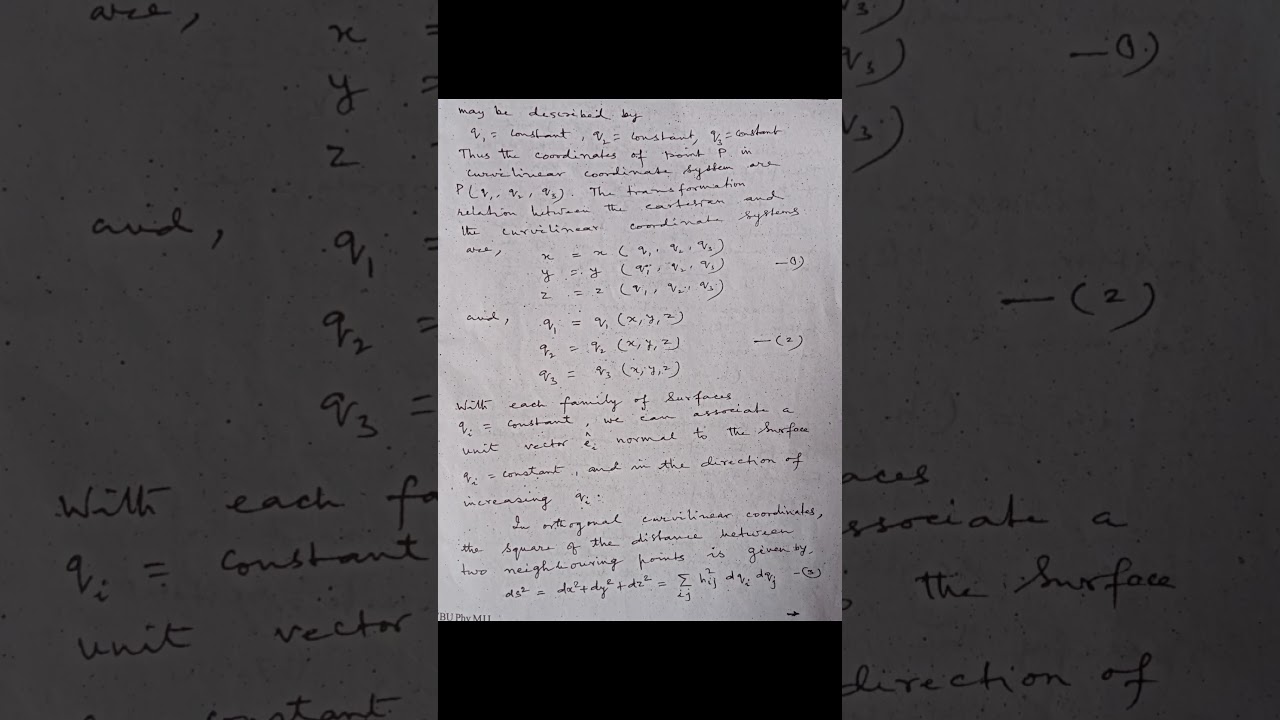 may be described by
q₁ = constant, q₂ = constant, q₃ = constant
Thus the coordinates of point P in
curvilinear coordinate system are
P (q₁, q₂, q₃). The transformation
relation between the cartesian and
the curvilinear coordinate systems
are,
x = x (q₁, q₂, q₃)
y = y (q₁, q₂, q₃) —(1)
z = z (q₁, q₂, q₃)
and,
q₁ = q₁ (x, y, z)
q₂ = q₂ (x, y, z) —(2)
q₃ = q₃ (x, y, z)
With each family of surfaces
qᵢ = constant, we can associate a
unit vector êᵢ normal to the surface
qᵢ = constant, and in the direction of
increasing qᵢ.
In orthogonal curvilinear coordinates,
the square of the distance between
two neighbouring points is given by,
ds² = dx² + dy² + dz² = Σᵢⱼ h²ᵢⱼ dqᵢ dqⱼ —(3)
BU Phy MU